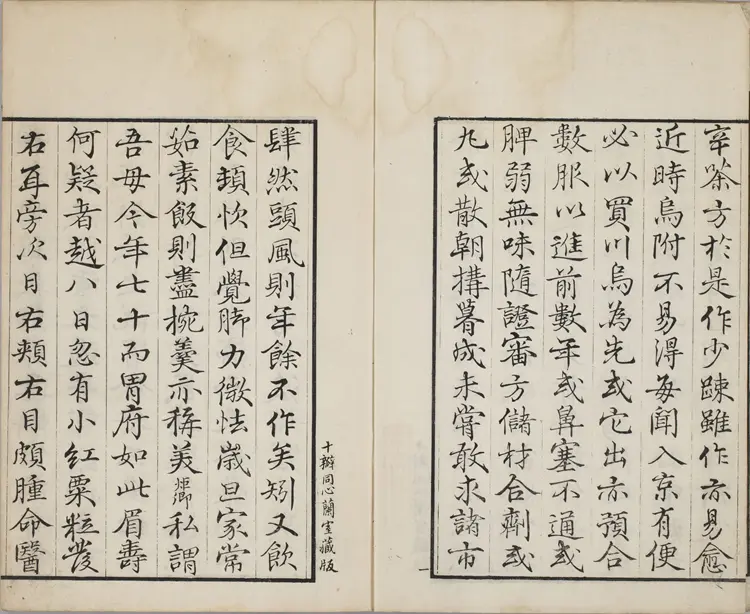 辛茶方於是作少踈雖作亦易愈
近時烏附不易得每聞入京有便
必以買川烏為先或它出亦預合
數服以進前數年或鼻塞不通或
脾弱無味隨證審方儲材合劑或
丸或散朝搆暮成未嘗敢求諸市
肆然頭風則年餘不作矣矧又飲
食頗快但覺脚力微怯歲旦家常
茹素飯則盡椀羹亦稱美炬卿私謂
吾母今年七十而胃府如此眉壽
何疑者越八日忽有小紅粟粒發
右耳旁次日右頰右目頗腫命醫
十瓣同心蘭室藏版
一